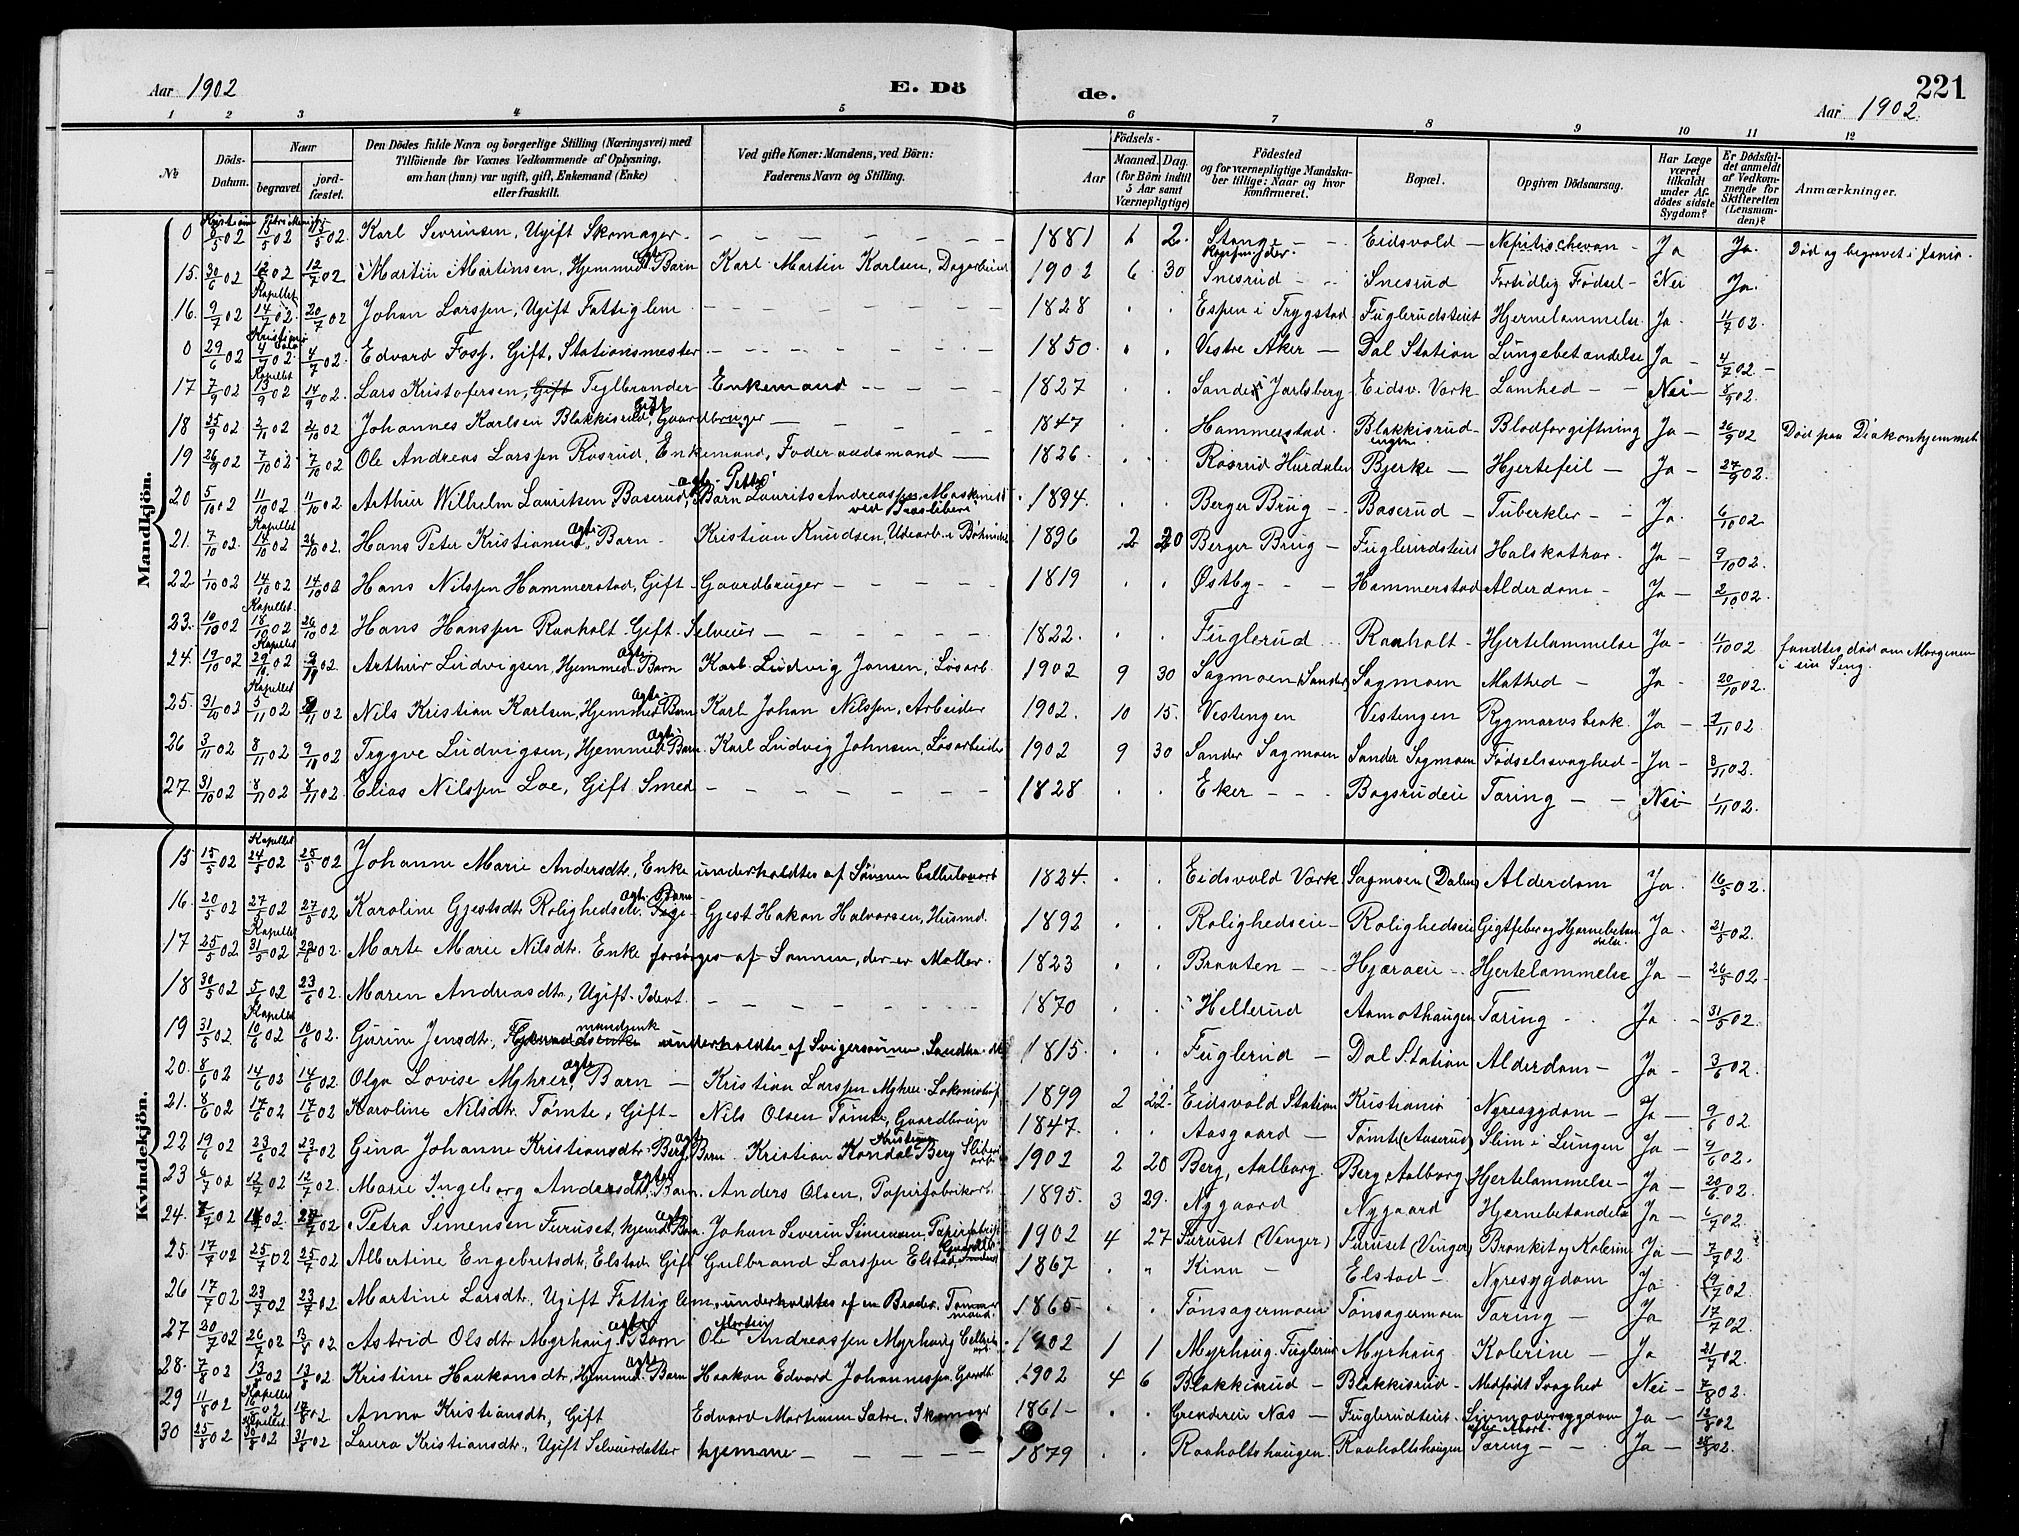 Aar 1902 E. Dö de. 221
Aar 1902.
1 2 3 4 5 6 7 8 9 10 11 12
№ Döds-Datum. Naar begravet jord-fæstet. Den Dödes fulde Navn og borgerlige Stilling (Næringsvei) med Tilföiende for Voxnes Vedkommende af Oplysning, om han (hun) var ugift, gift, Enkemand (Enke) eller fraskilt. Ved gifte Koner: Mandens, ved Börn: Faderens Navn og Stilling. Födsels- Aar Maaned. Dag. (for Börn indtil 5 Aar samt Værnepligtige) Födested og for værnepligtige Mandskaber tillige: Naar og hvor konfirmeret. Bopæl. Opgiven Dödsaarsag. Har Læge været tilkaldt under Afdödes sidste Sygdom? Er Dödsfaldet anmeldt af Vedkommende for Skifteretten (Lensmanden)? Anmærkninger.
Mandkjön.
0 8/5 02 13/5 02 13/5 02. Karl Sevrinsen, Ugift Skomager. 1881 1 2. Stange Eidsvold Ja Ja. Död og begravet i
15. 30/6 02 12/7 02 12/7 02 Martin Martinsen, Hjemmed. Ægte Barn Karl Martin Karlsen, Dagarbeid 1902 6 30 Snesrud Snesrud Fortidlig Födsel Nei Ja.
16. 9/7 02 Kapellet 14/7 02. 20/7 02 Johan Larssen, Ugift Fattiglem 1828 Espen i Trygstad Fuglerudsteiet Hjernelammelse Ja. 11/7 02.
0 29/6 02 Kristiania 4/7 02. 4/7 02. Edvard Foss, Gift, Stationsmester 1850. Vestre Aker Dal Station Lungebetændelse Ja 4/7 02.
17 7/9 02 Kapellet 13/9 02. 14/9 02. Lars Kristofersen, Gift Teglbrænder Enkemand 1827 Sande i Jarlsberg Eidsv. Værk Lamhed Nei 8/9 02.
18 25/9 02. 2/10 02 2/10 02 Johannes Karlsen Blakkisrud, Gift Gaardbruger 1847 Hammerstad. Blakkisrud Blodforgiftning Ja 26/9 02 Död paa Diakonhjemmet
19 26/9 02 7/10 02. 7/10 02 Ole Andreas Larssen Rösrud, Enkemand, Föderaadsmand 1826. Rösrud Hurdalen Bjerke Hjertefeil Ja 27/9 02.
20 5/10 02 11/10 02 11/10 02. Arthur Wilhelm Lauritsen Baserud, Ægte Barn Laurits Andreassen, Maskinist ved Træsliberi 1894. Berger Brug Baserud Tuberkler Ja. 6/10 02
21. 7/10 02. Kapellet 14/10 02 26/10 02. Hans Peter Kristiansen, Ægte Barn Kristian Knudsen, Udearb. i 1896 2 20 Berger Brug Fuglerudsteiet Halskathar. Ja 9/10 02.
22 1/10 02 14/10 02 14/10 02 Hans Nilssen Hammerstad, Gift Gaardbruger 1819 Østby Hammerstad Alderdom Ja 2/10 02.
23. 10/10 02 Kapellet. 18/10 02 26/10 02 Hans Hanssen Raaholt Gift Selveier 1822. Fuglerud Raaholt Hjertelammelse Ja 11/10 02 fandtes död om Morgenen i sin Seng.
24. 19/10 02 Kapellet 29/10 02 9/11 02. Arthur Ludvigsen, Hjemmed. Ægte Barn Karl Ludvig Jansen, Lösarb. 1902 9 30 Sagmoen (Sander) Sagmoen Mathed Ja 20/10 02.
25. 31/10 02 Kapellet 5/11 02 9/11 02 Nils Kristian Karlsen, Hjemmed. Ægte Barn Karl Johan Nilssen, Arbeider 1902. 10 15. Vestengen Vestengen Rygmarvsbrok. Ja 7/11 02.
26 3/11 02 8/11 02 9/11 02. Trygve Ludvigsen, Hjemmed Ægte Barn. Karl Ludvig Johnsen, Lösarbeider 1902 9 30 Sander Sagmoen Sander Sagmoen Födselssvaghed Ja 8/11 02.
27. 31/10 02 8/11 02 8/11 02. Elias Nilssen Loe, Gift Smed 1828 Eker Bøgsrudeie Tæring Nei 1/11 02.
Kvindekjön.
15 15/5 02 Kapellet 24/5 02 25/5 02 Johanne Marie Andersdtr, Enke underholdtes af Sönnen Cellulosearb 1824. Eidsvold Værk Sagmoen (Dalen) Alderdom Ja. 16/5 02.
16. 20/5 02 27/5 02 27/5 02. Karoline Gjestsdtr Rolighedseie Ægte Barn Gjest Hakon Halvorsen, Husmd. 1892 Rolighedseie Rolighedseie Gigtfeber og Hjernebetændelse. Ja. 21/5 02.
17 25/5 02 Kapellet 31/5 02 02. Marte Marie Nilsdtr. Enke forsörges af Sönnen, der er Möller. 1823 Braaten Hjæraeie Hjertelammelse Ja 26/5 02
18 30/5 02 5/6 02 23/6 02. Maren Andreasdtr, Ugift Idiot. 1870 Hellerud Aamothaugen Tæring Ja 31/5 02.
19 31/5 02 Kapellet 10/6 02 10/6 02. Gurine Jensdtr, mandsenk underholdtes af Svigersönnen 1815. Fuglerud Dal Station Alderdom Ja 3/6 02.
20. 8/6 02 14/6 02 14/6 02. Olga Lovise Myhrer, Ægte Barn Kristian Larssen Myhrer Lokomotivf 1899 2 22. Eidsvold Station Kristiania Nyresygdom Ja 9/6 02
21. 8/6 02 17/6 02 17/6 02. Karoline Nilsdtr. Tömte, Gift Nils Olsen Tömte, Gaardbruge 1847. Aasgaard Tömte (Aaserud) Slim i Lungen Ja 9/6 02.
22 19/6 02 23/6 02 23/6 02. Gina Johanne Kristiansdtr. Berg, Ægte Barn. Kristian Kondal Berg Sliberiarb. 1902 2 20 Berg, Aalborg. Berg Aalborg Hjertelammelse Ja 20/6 02.
23 6/7 02 12/7 02 12/7 02. Marie Ingeborg Andersdtr. Ægte Barn. Anders Olsen, Papirfabrikarb. 1895. 3 29. Nygaard Nygaard Hjernebetændelse Ja 6/7 02.
24. 7/7 02 02. 02. Petra Simensen Furuset, hjemd. Ægte Barn. Johan Severin Simensen, Papirfabrik 1902 4 27 Furuset (Vinger) Furuset (Vinger) Bronkit og Kolerin Ja 7/7 02.
25. 17/7 02 25/7 02 25/7 02 Albertine Engebretsdtr, Elstad Gift Gulbrand Larssen Elstad 1867 Kinn Elstad Nyresygdom Ja 19/7 02
26 17/7 02 23/7 02 23/7 02. Martine Larsdtr, Ugift Fattiglem, underholdtes af en Broder. Tömmermand. 1865 Tönsagermoen Tönsagermoen Tæring Ja 17/7 02.
27 30/7 02 26/7 02 13/8 02. Astrid Olsdtr Myrhaug Ægte Barn Ole Martin Andreassen Myrhaug 1902 1 1 Myrhaug. Fuglerud Myrhaug Kolerine Ja 21/7 02.
28. 7/8 02 13/8 02 13/8 02. Kristine Haakonsdtr, Hjemmed. Ægte Barn Haakon Edvard Johannessen, 1902 4 6 Blakkisrud Blakkisrud Medfödt Svaghed Nei 7/8 02.
29 11/8 02 Kapellet 16/8 02 17/8 02 Anna Kristiansdtr, Gift Edvard Martinsen Sætre. Skomager 1861 Grendereie Næs Fuglerudsteiet. Livmodersygdom efter Abort. Ja 12/8 02
30 25/8 02 Kapellet. 30/8 02 31/8 02 Laura Kristiansdtr, Ugift Selveierdatter hjemme 1879 Raaholtshaugen Raaholtshaugen Tæring Ja 28/8 02.